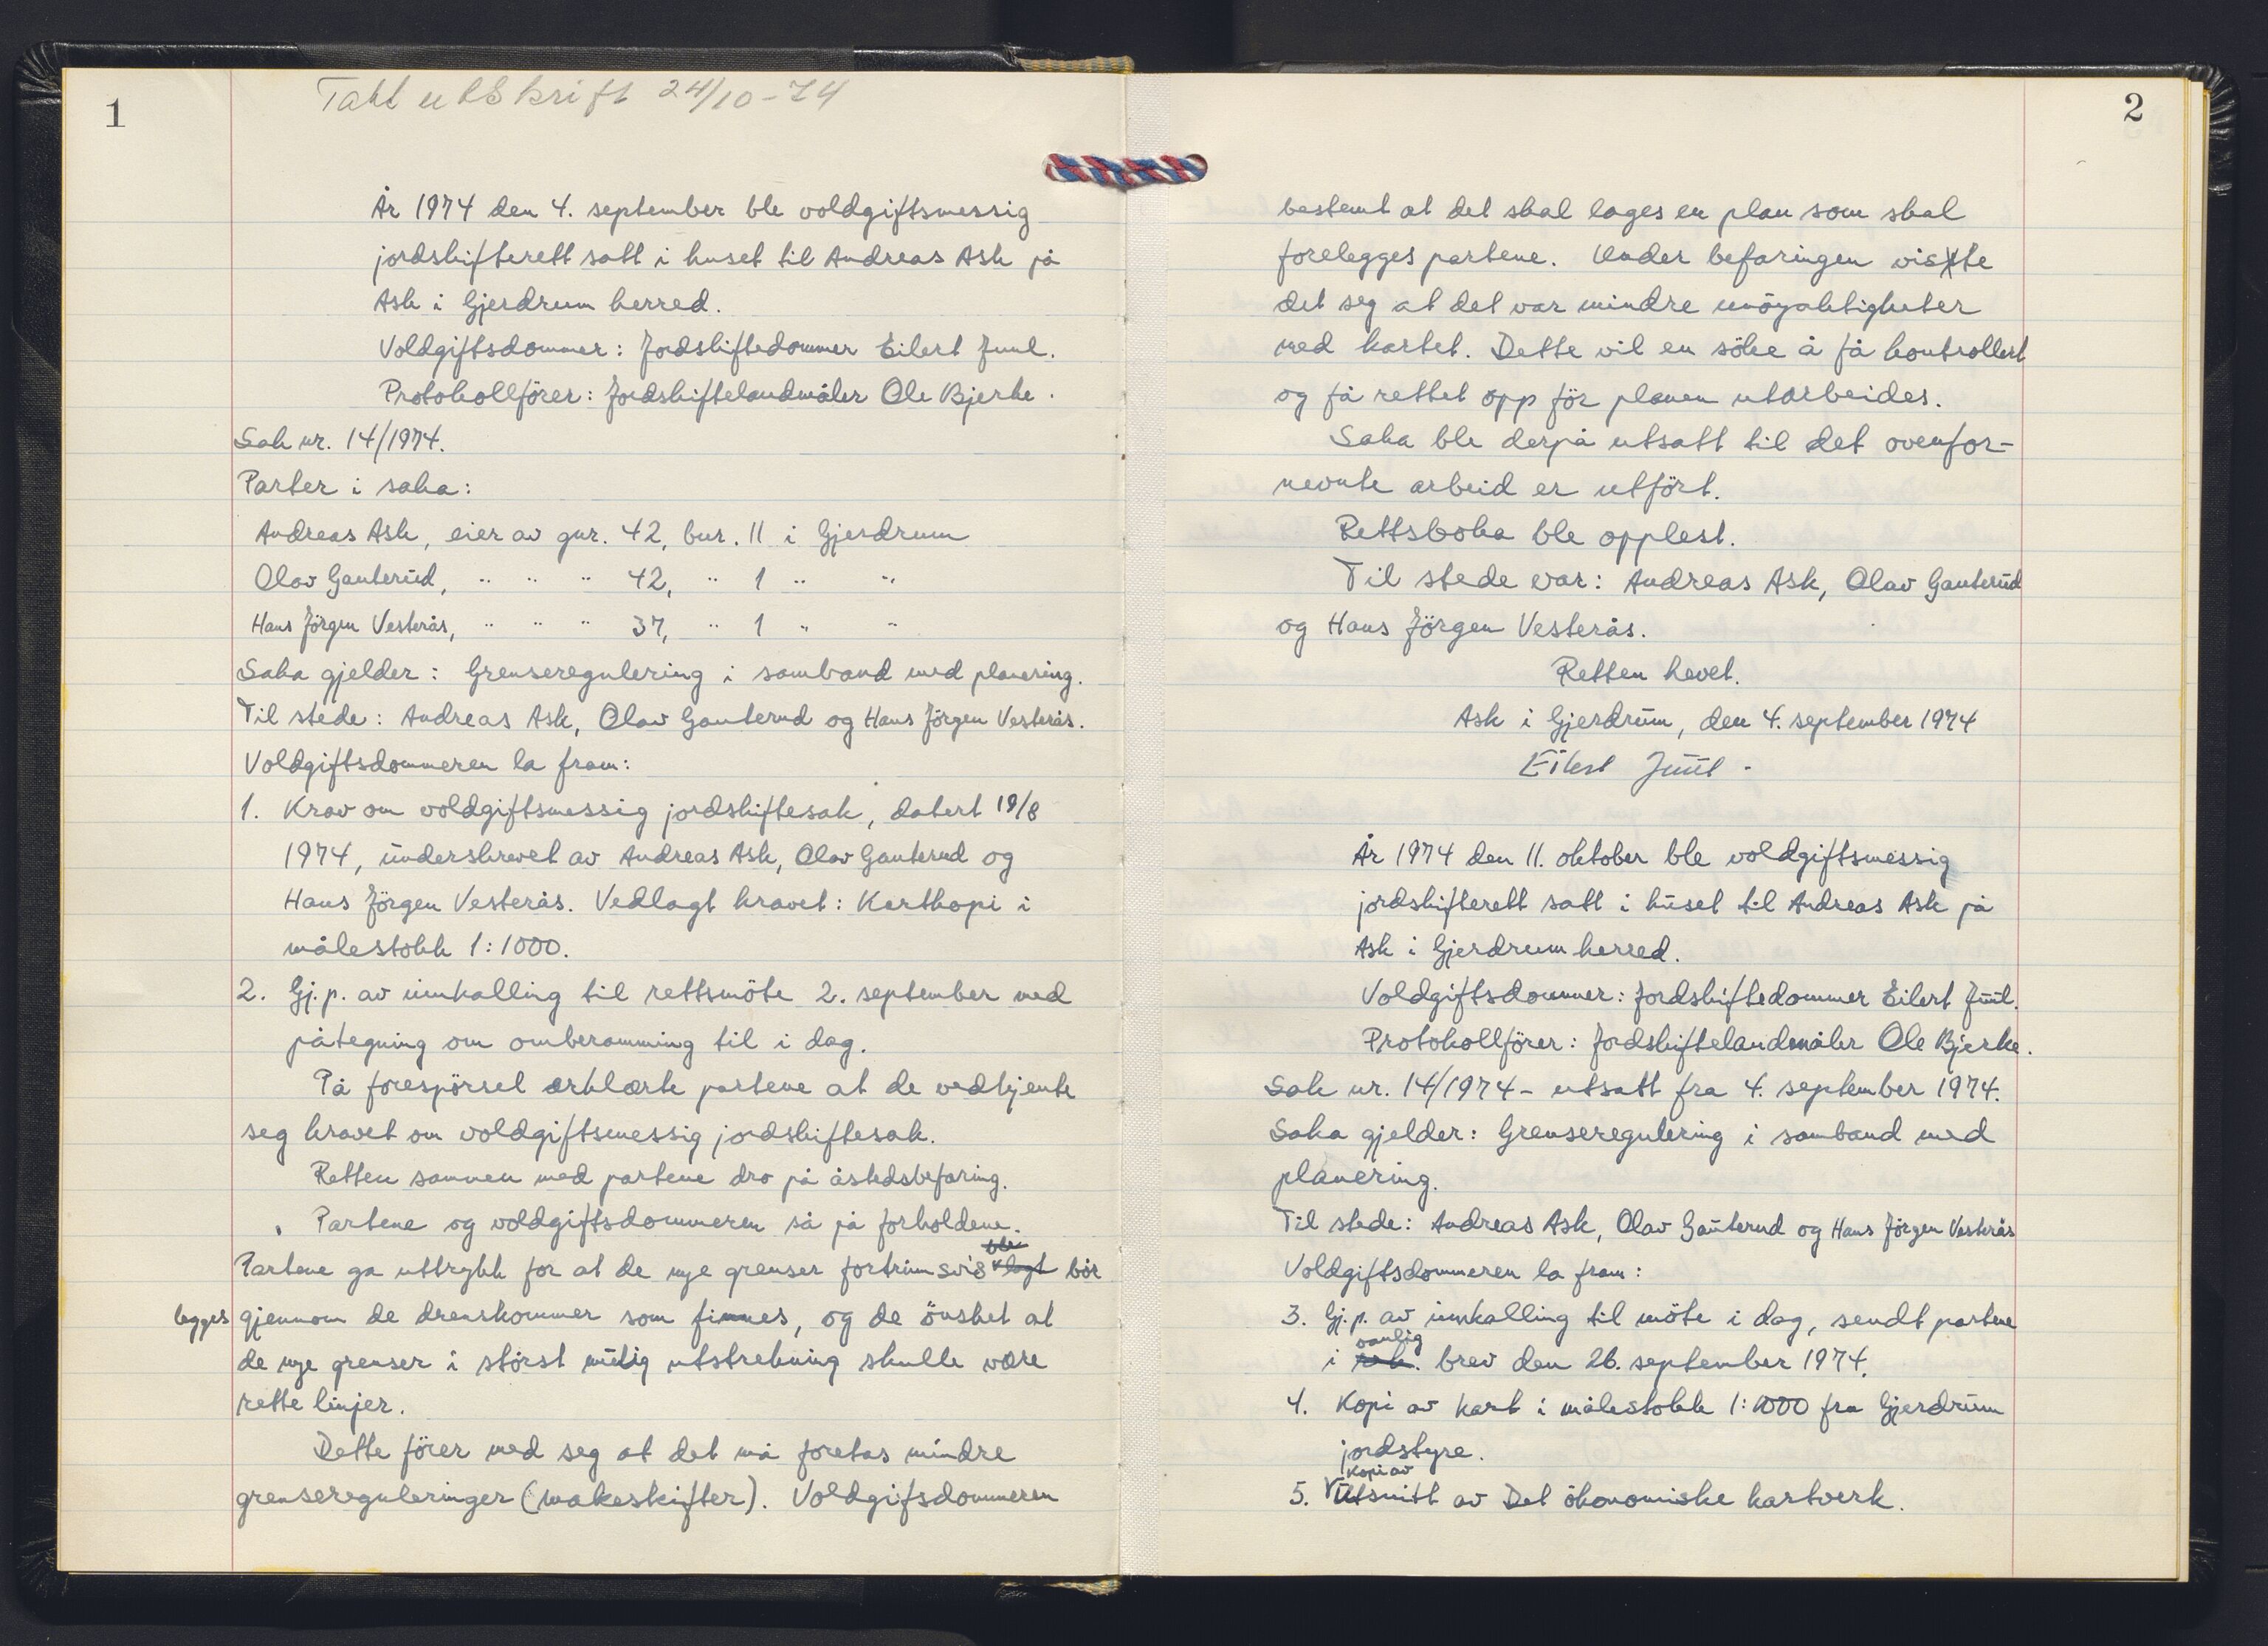 1
Tatt utskrift 24/10-74
År 1974 den 4. september ble voldgiftsmessig
jordskifterett satt i huset til Andreas Ask på
Ask i Gjerdrum herred.
Voldgiftsdommer: Jordskiftedommer Eilert Juul.
Protokollförer: Jordskiftelandmåler Ole Bjerke.
Sak nr. 14/1974.
Parter i saka:
Andreas Ask, eier av gnr. 42, bnr. 11 i Gjerdrum
Olav Gauterud, " " " 42, " 1 " "
Hans Jörgen Vesterås, " " " 37, " 1 " "
Saka gjelder: Grenseregulering i samband med planering.
Til stede: Andreas Ask, Olav Gauterud og Hans Jörgen Vesterås.
Voldgiftsdommeren la fram:
1. Krav om voldgiftsmessig jordskiftesak, datert 19/8
1974, underskrevet av Andreas Ask, Olav Gauterud og
Hans Jörgen Vesterås. Vedlagt kravet: Kartkopi i
målestokk 1:1000.
2. Gj.p. av innkalling til rettsmöte 2. september med
påtegning om omberamming til i dag.
På forespörsel erklærte partene at de vedkjente
seg kravet om voldgiftsmessig jordskiftesak.
Retten sammen med partene dro på åstedsbefaring.
Partene og voldgiftsdommeren så på forholdene.
ble
Partene ga uttrykk for at de nye grenser fortrinnsvis lagt bör
legges gjennom de drenskommer som finnes, og de önsket at
de nye grenser i störst mulig utstrekning skulle være
rette linjer.
Dette förer med seg at det må foretas mindre
grensereguleringer (makeskifter). Voldgifsdommeren
2
bestemt at det skal lages en plan som skal
forelegges partene. Under befaringen viste
det seg at det var mindre unöyaktigheter
med kartet. Dette vil en söke å få kontrollert
og få rettet opp för planen utarbeides.
Saka ble derpå utsatt til det ovenfor-
nevnte arbeid er utfört.
Rettsboka ble opplest.
Til stede var: Andreas Ask, Olav Gauterud
og Hans Jörgen Vesterås.
Retten hevet.
Ask i Gjerdrum, den 4. september 1974
Eilert Juul.
År 1974 den 11. oktober ble voldgiftsmessig
jordskifterett satt i huset til Andreas Ask på
Ask i Gjerdrum herred.
Voldgiftsdommer: Jordskiftedommer Eilert Juul.
Protokollförer: Jordskiftelandmåler Ole Bjerke.
Sak nr. 14/1974 - utsatt fra 4. september 1974.
Saka gjelder: Grenseregulering i samband med
planering.
Til stede: Andreas Ask, Olav Gauterud og Hans Jörgen Vesterås
Voldgiftsdommeren la fram:
3. Gj.p. av innkalling til möte i dag, sendt partene
vanlig
i rek. brev den 26. september 1974.
4. Kopi av kart i målestokk 1:1000 fra Gjerdrum
jordstyre.
Kopi av
5. Utsnitt av Det ökonomiske kartverk.